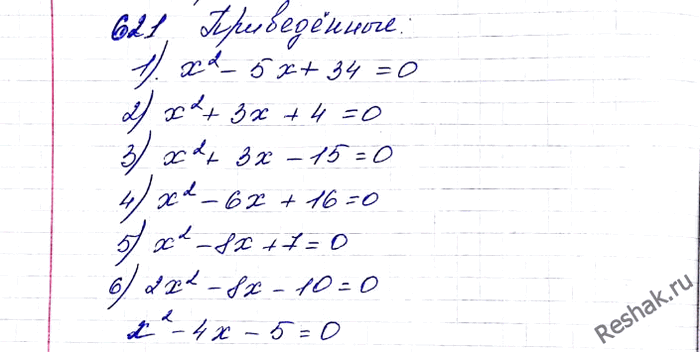 621 Приведённые:
1). x² - 5x + 34 = 0
2) x² + 3x + 4 = 0
3) x² + 3x - 15 = 0
4) x² - 6x + 16 = 0
5) x² - 8x + 7 = 0
6) 2x² - 8x - 10 = 0
x² - 4x - 5 = 0
Reshak.ru